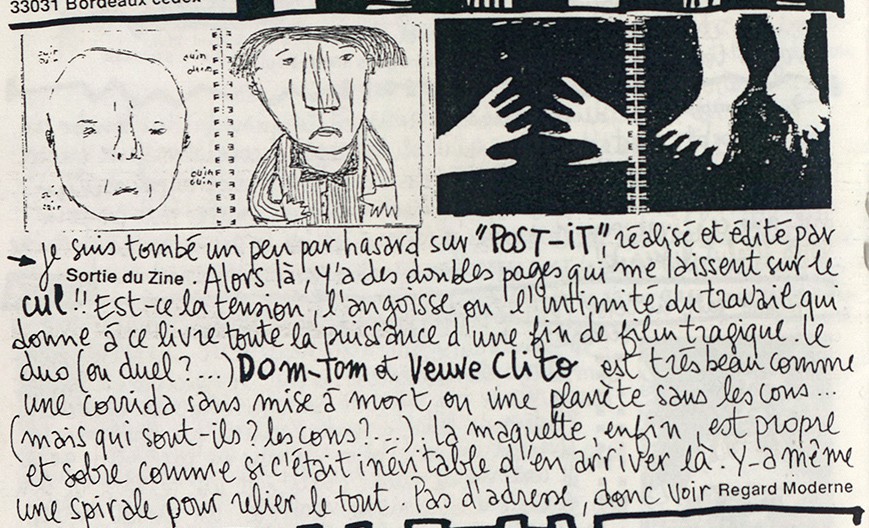 33031 Bordeaux cedex
ouin
ouin
ouin
ouin
je suis tombé un peu par hasard sur "POST-iT" réalisé et édité par
Sortie du Zine. Alors là, Y'a des doubles pages qui me laissent sur le
cul!! Est-ce la tension, l'angoisse ou l'intimité du travail qui
donne à ce livre toute la puissance d'une fin de film tragique. le
duo (ou duel?...) DOM-TOM et Veuve Clito est très beau comme
une corrida sans mise à mort ou une planète sans les cons...
(mais qui sont-ils? les cons?...). la maquette, enfin, est propre
et sobre comme si c'était inévitable d'en arriver là. Y-a même
une spirale pour relier le tout. Pas d'adresse, donc Voir Regard Moderne